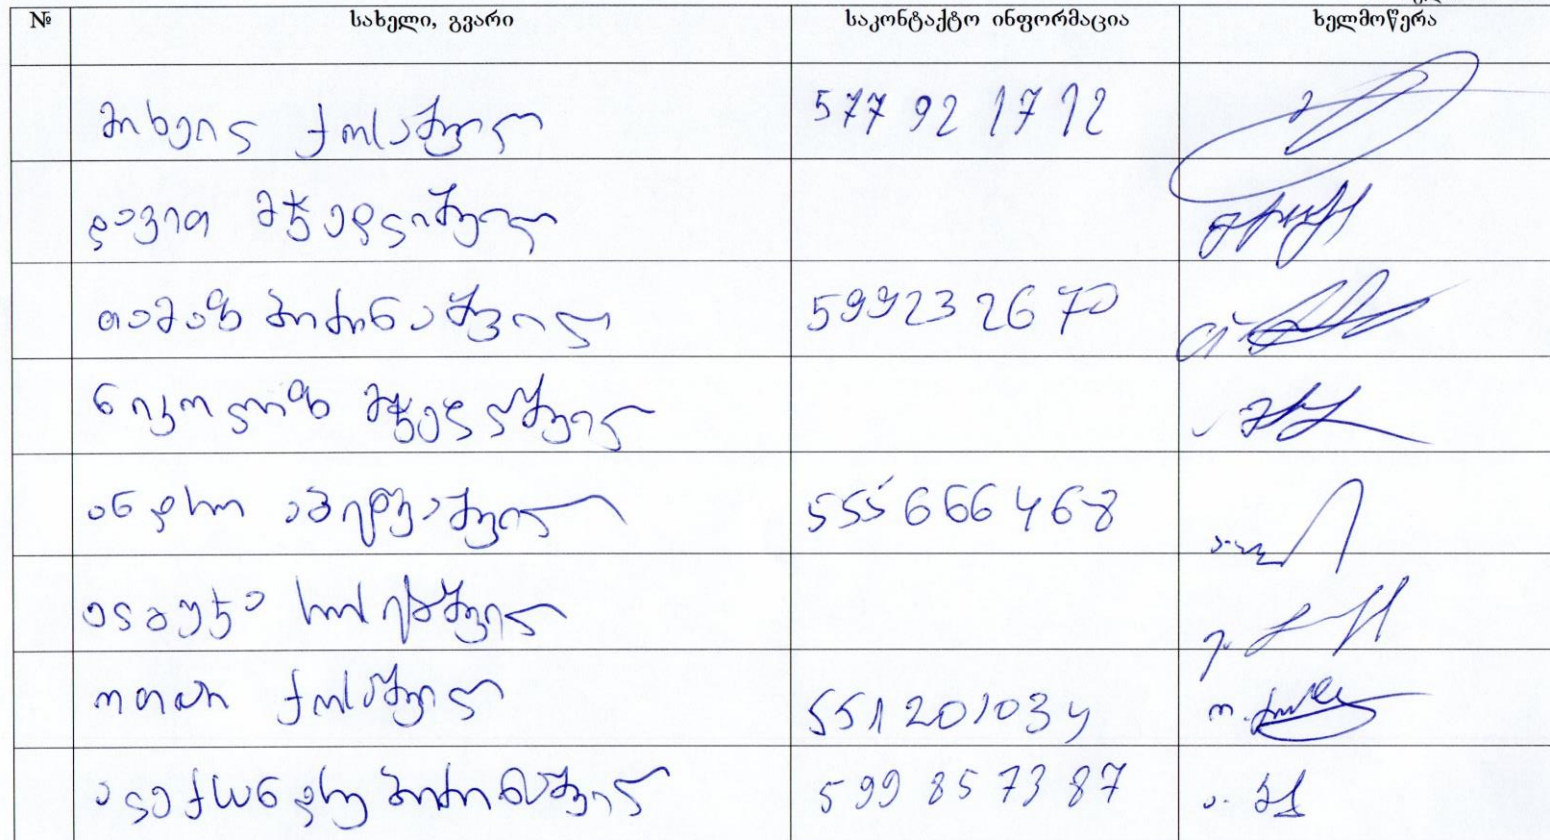 № სახელი, გვარი საკონტაქტო ინფორმაცია ხელმოწერა
მიხეილ ქოსაშვილი 577 92 17 12
დავით მჭედლიშვილი
თამაზ ბირინაშვილი 599 23 26 70
ნიკოლოზ მჭედლიშვილი
ანდრო 555 666 468
ოთარ ქოსაშვილი 551 201034
ალექსანდრე ბირინაშვილი 599 85 73 87